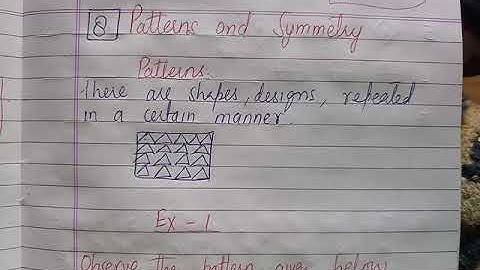 8 Patterns and Symmetry
Patterns.
There are shapes, designs, repeated
in a certain manner.
Ex - 1
Observe the pattern given below